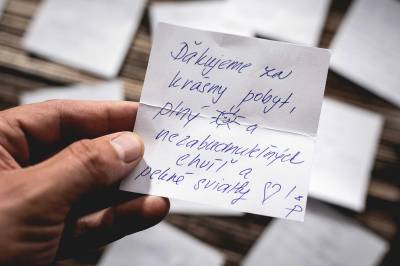 Ďakujeme za
krásny pobyt,
plný ☀ a
nezabudnuteľných
chvíľ a
pekné sviatky ♡! &
P